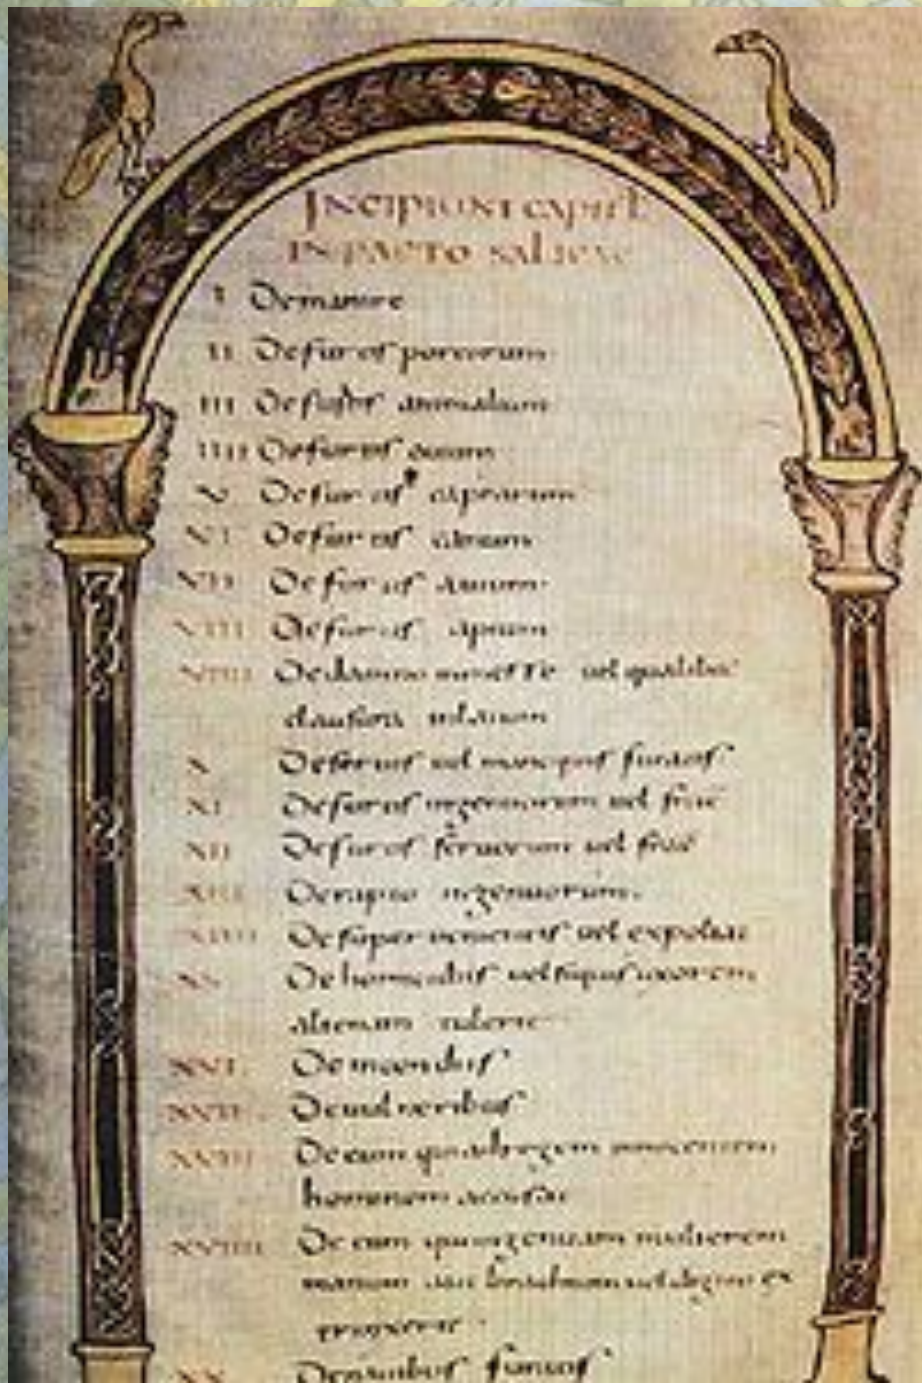 INCIPIUNT CAPITL
IN PACTO SALICAE
I Demanire
II Defurtis porcorum
III Defurtis animalium
IIII Defurtis ouium
V Defurtis caprarum
VI Defurtis canum
VII Defurtis auium
VIII Defurtis apium
VIIII Dedamno messe uel qualibet
clausura
X Deseruis uel mancipiis furatis
XI Defurtis ingenuorum uel
XII Defurtis seruorum uel
XIII Derapto ingenuorum
XIIII Desuper uentis uel expoliat
XV De homicidiis uel siquis uxorem
alienam tulerit
XVI Deincendiis
XVII Deuulneribus
XVIII De eum qui adregem innocentem
hominem accusat
XVIIII De eum qui ingenuam mulierem
manum aut brachium uel digitum ex
trinxerit
XX Denauibus furatis